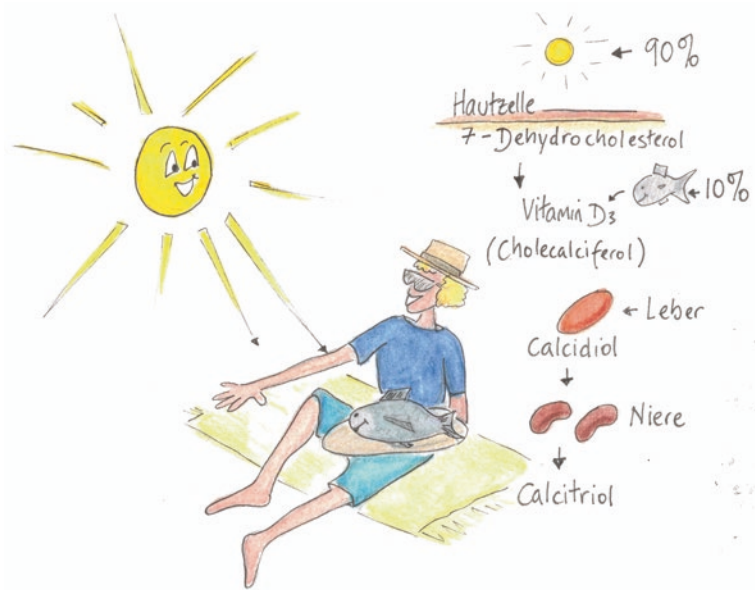 90%
Hautzelle
7-Dehydrocholesterol
Vitamin D3
10%
(Cholecalciferol)
Leber
Calcidiol
Niere
Calcitriol